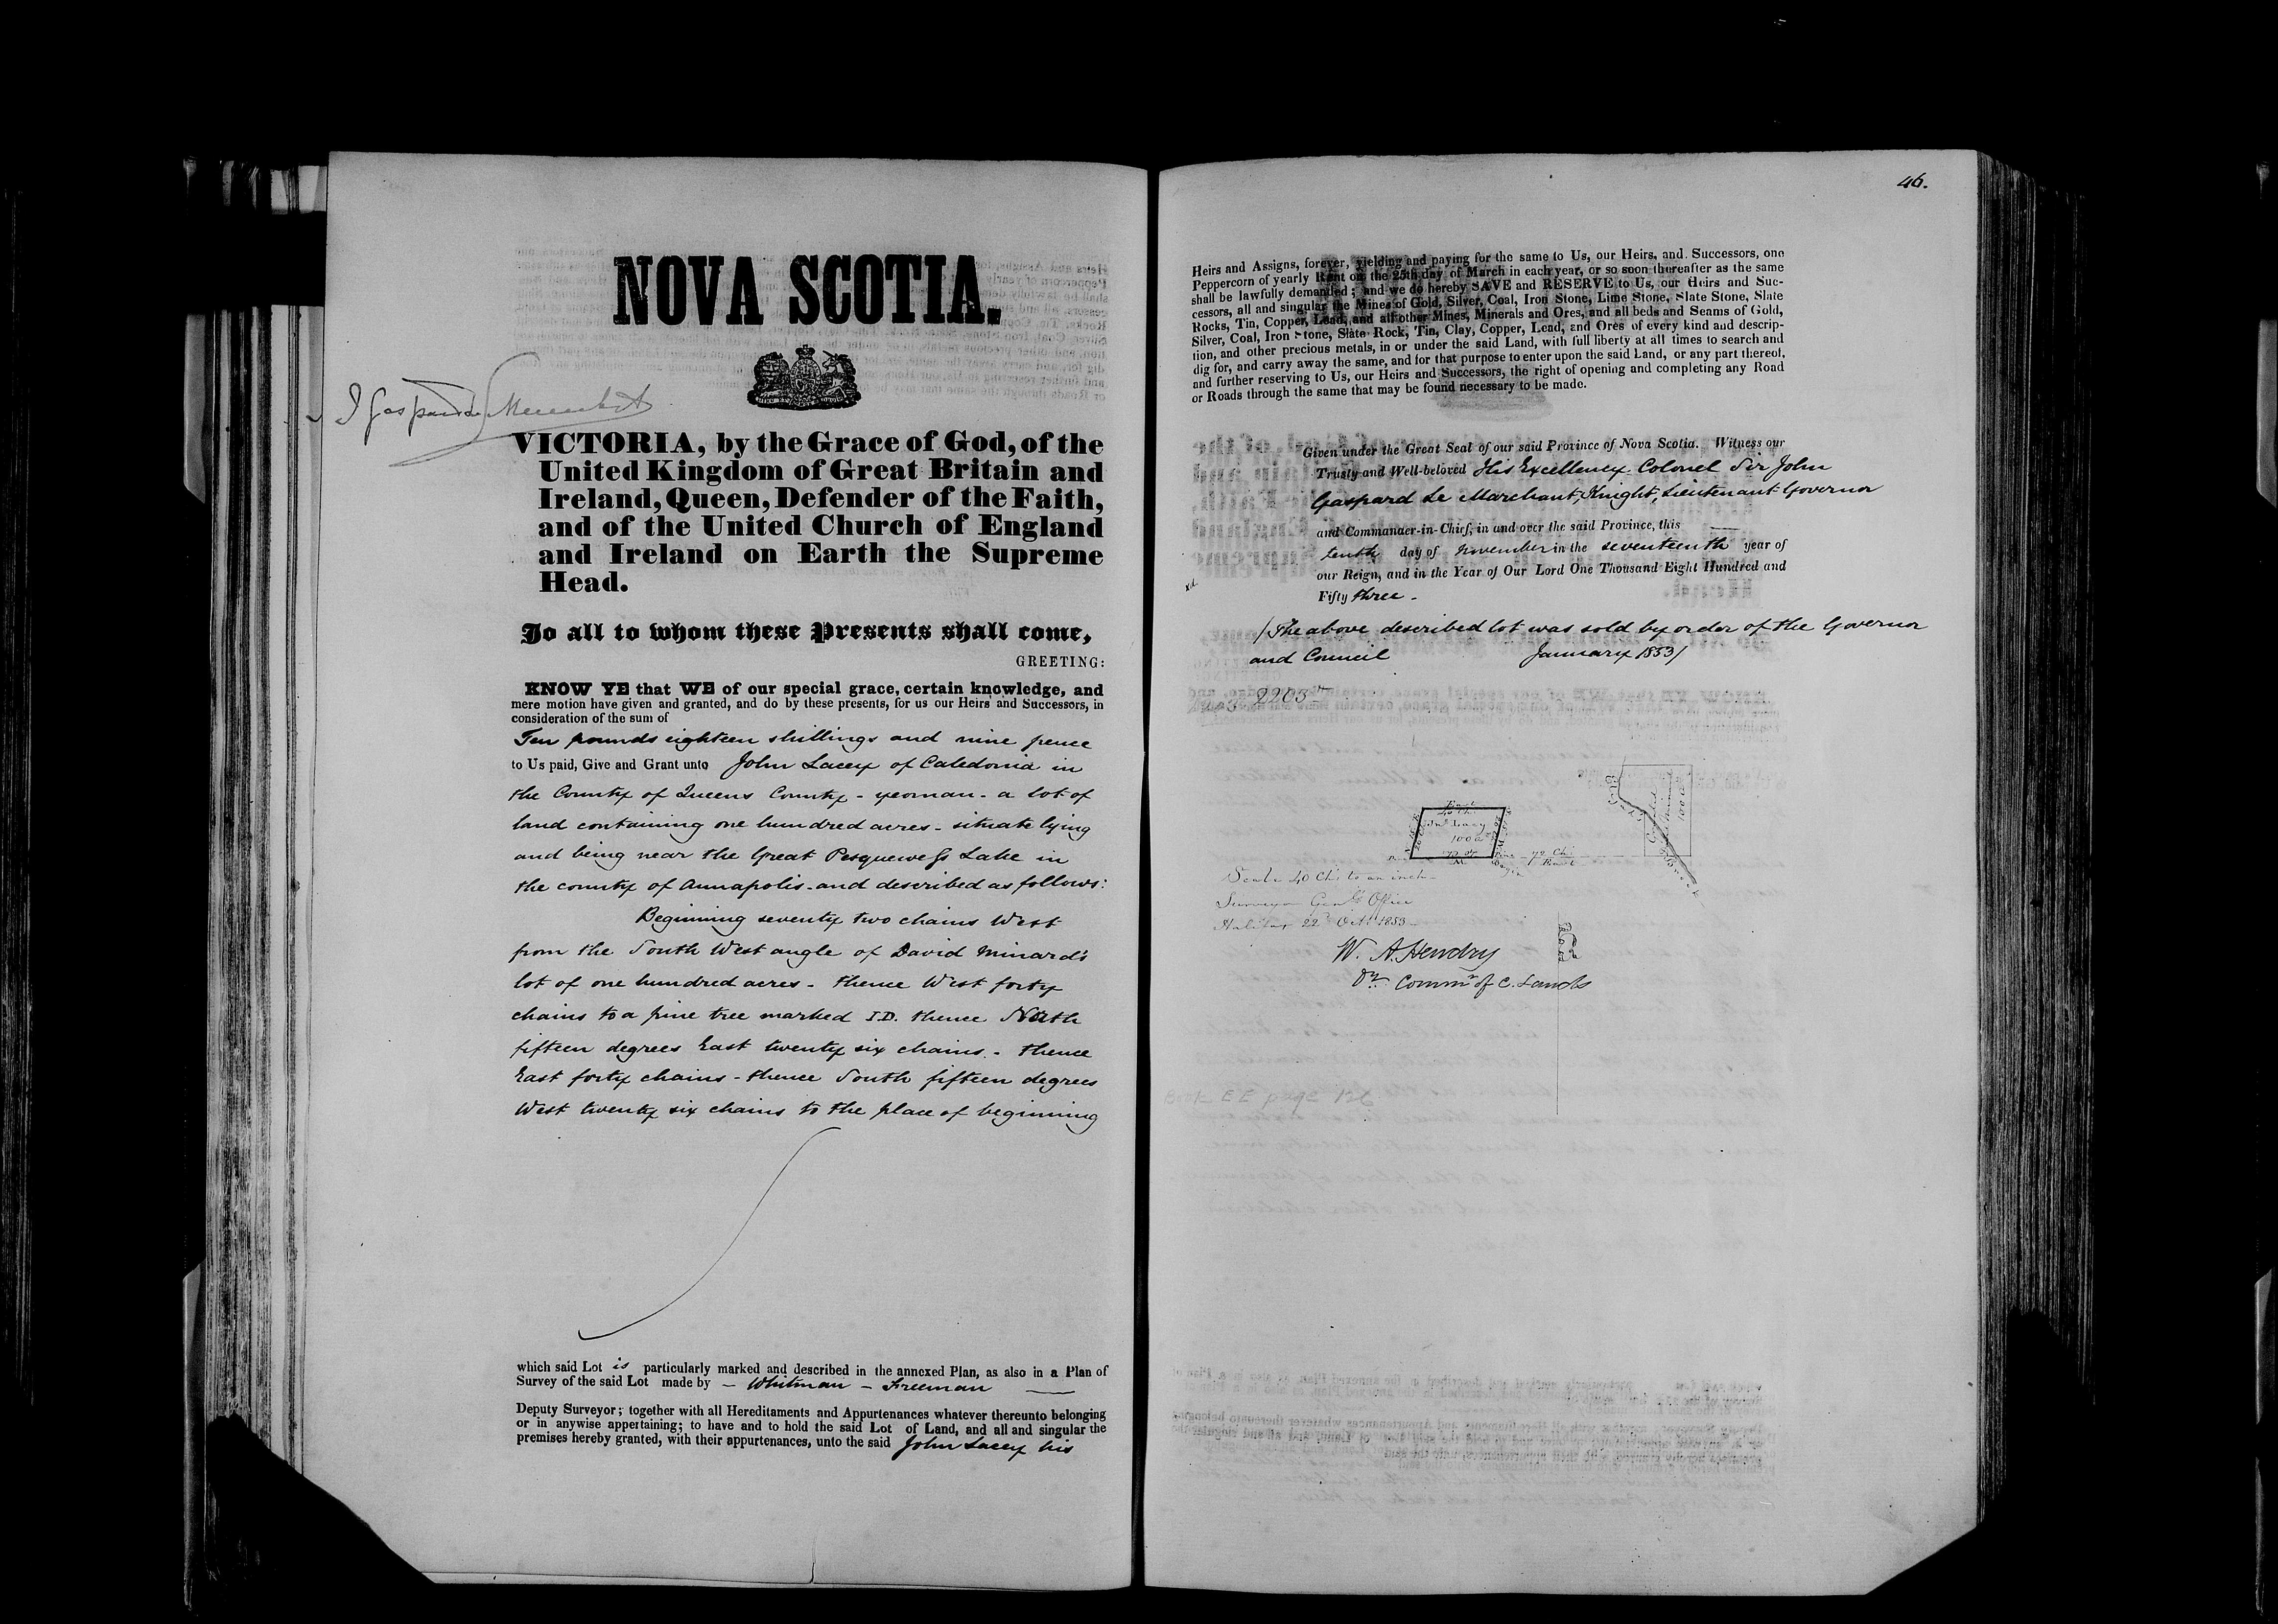 NOVA SCOTIA.
VICTORIA, by the Grace of God, of the
United Kingdom of Great Britain and
Ireland, Queen, Defender of the Faith,
and of the United Church of England
and Ireland on Earth the Supreme
Head.
To all to whom these Presents shall come,
GREETING:
KNOW YE that WE of our special grace, certain knowledge, and
mere motion have given and granted, and do by these presents, for us our Heirs and Successors, in
consideration of the sum of
Ten pounds eighteen shillings and nine pence
to Us paid, Give and Grant unto John Lacey of Caledonia in
the County of Queens County - yeoman - a lot of
land containing one hundred acres - situate lying
and being near the Great Pesquewess Lake in
the county of Annapolis - and described as follows:
Beginning seventy two chains West
from the South West angle of David Minard's
lot of one hundred acres - thence West forty
chains to a pine tree marked I.D. thence North
fifteen degrees East twenty six chains - thence
East forty chains - thence South fifteen degrees
West twenty six chains to the place of beginning
which said Lot is particularly marked and described in the annexed Plan, as also in a Plan of
Survey of the said Lot made by - Whitman - Freeman
Deputy Surveyor; together with all Hereditaments and Appurtenances whatever thereunto belonging
or in anywise appertaining; to have and to hold the said Lot of Land, and all and singular the
premises hereby granted, with their appurtenances, unto the said John Lacey his
46.
Heirs and Assigns, forever, yielding and paying for the same to Us, our Heirs, and Successors, one
Peppercorn of yearly Rent on the 25th day of March in each year, or so soon thereafter as the same
shall be lawfully demanded; and we do hereby SAVE and RESERVE to Us, our Heirs and Suc-
cessors, all and singular the Mines of Gold, Silver, Coal, Iron Stone, Lime Stone, Slate Stone, Slate
Rocks, Tin, Copper, Lead, and all other Mines, Minerals and Ores, and all beds and Seams of Gold,
Silver, Coal, Iron Stone, Slate Rock, Tin, Clay, Copper, Lead, and Ores of every kind and descrip-
tion, and other precious metals, in or under the said Land, with full liberty at all times to search and
dig for, and carry away the same, and for that purpose to enter upon the said Land, or any part thereof,
and further reserving to Us, our Heirs and Successors, the right of opening and completing any Road
or Roads through the same that may be found necessary to be made.
Given under the Great Seal of our said Province of Nova Scotia. Witness our
Trusty and Well-beloved His Excellency Colonel Sir John
Gaspard Le Marchant, Knight, Lieutenant Governor
and Commander-in-Chief, in and over the said Province, this
tenth day of November in the seventeenth year of
our Reign, and in the Year of Our Lord One Thousand Eight Hundred and
Fifty three -
/The above described lot was sold by order of the Governor
and Council January 1853/
2203
East
Jno Lacy
100 a
72 Ch
East
100 a
Scale 40 Chs to an inch
Surveyor Genls Office
Halifax 22d Octr 1853
W. A. Hendry
Dy Commr of C. Lands
Book EE page 126